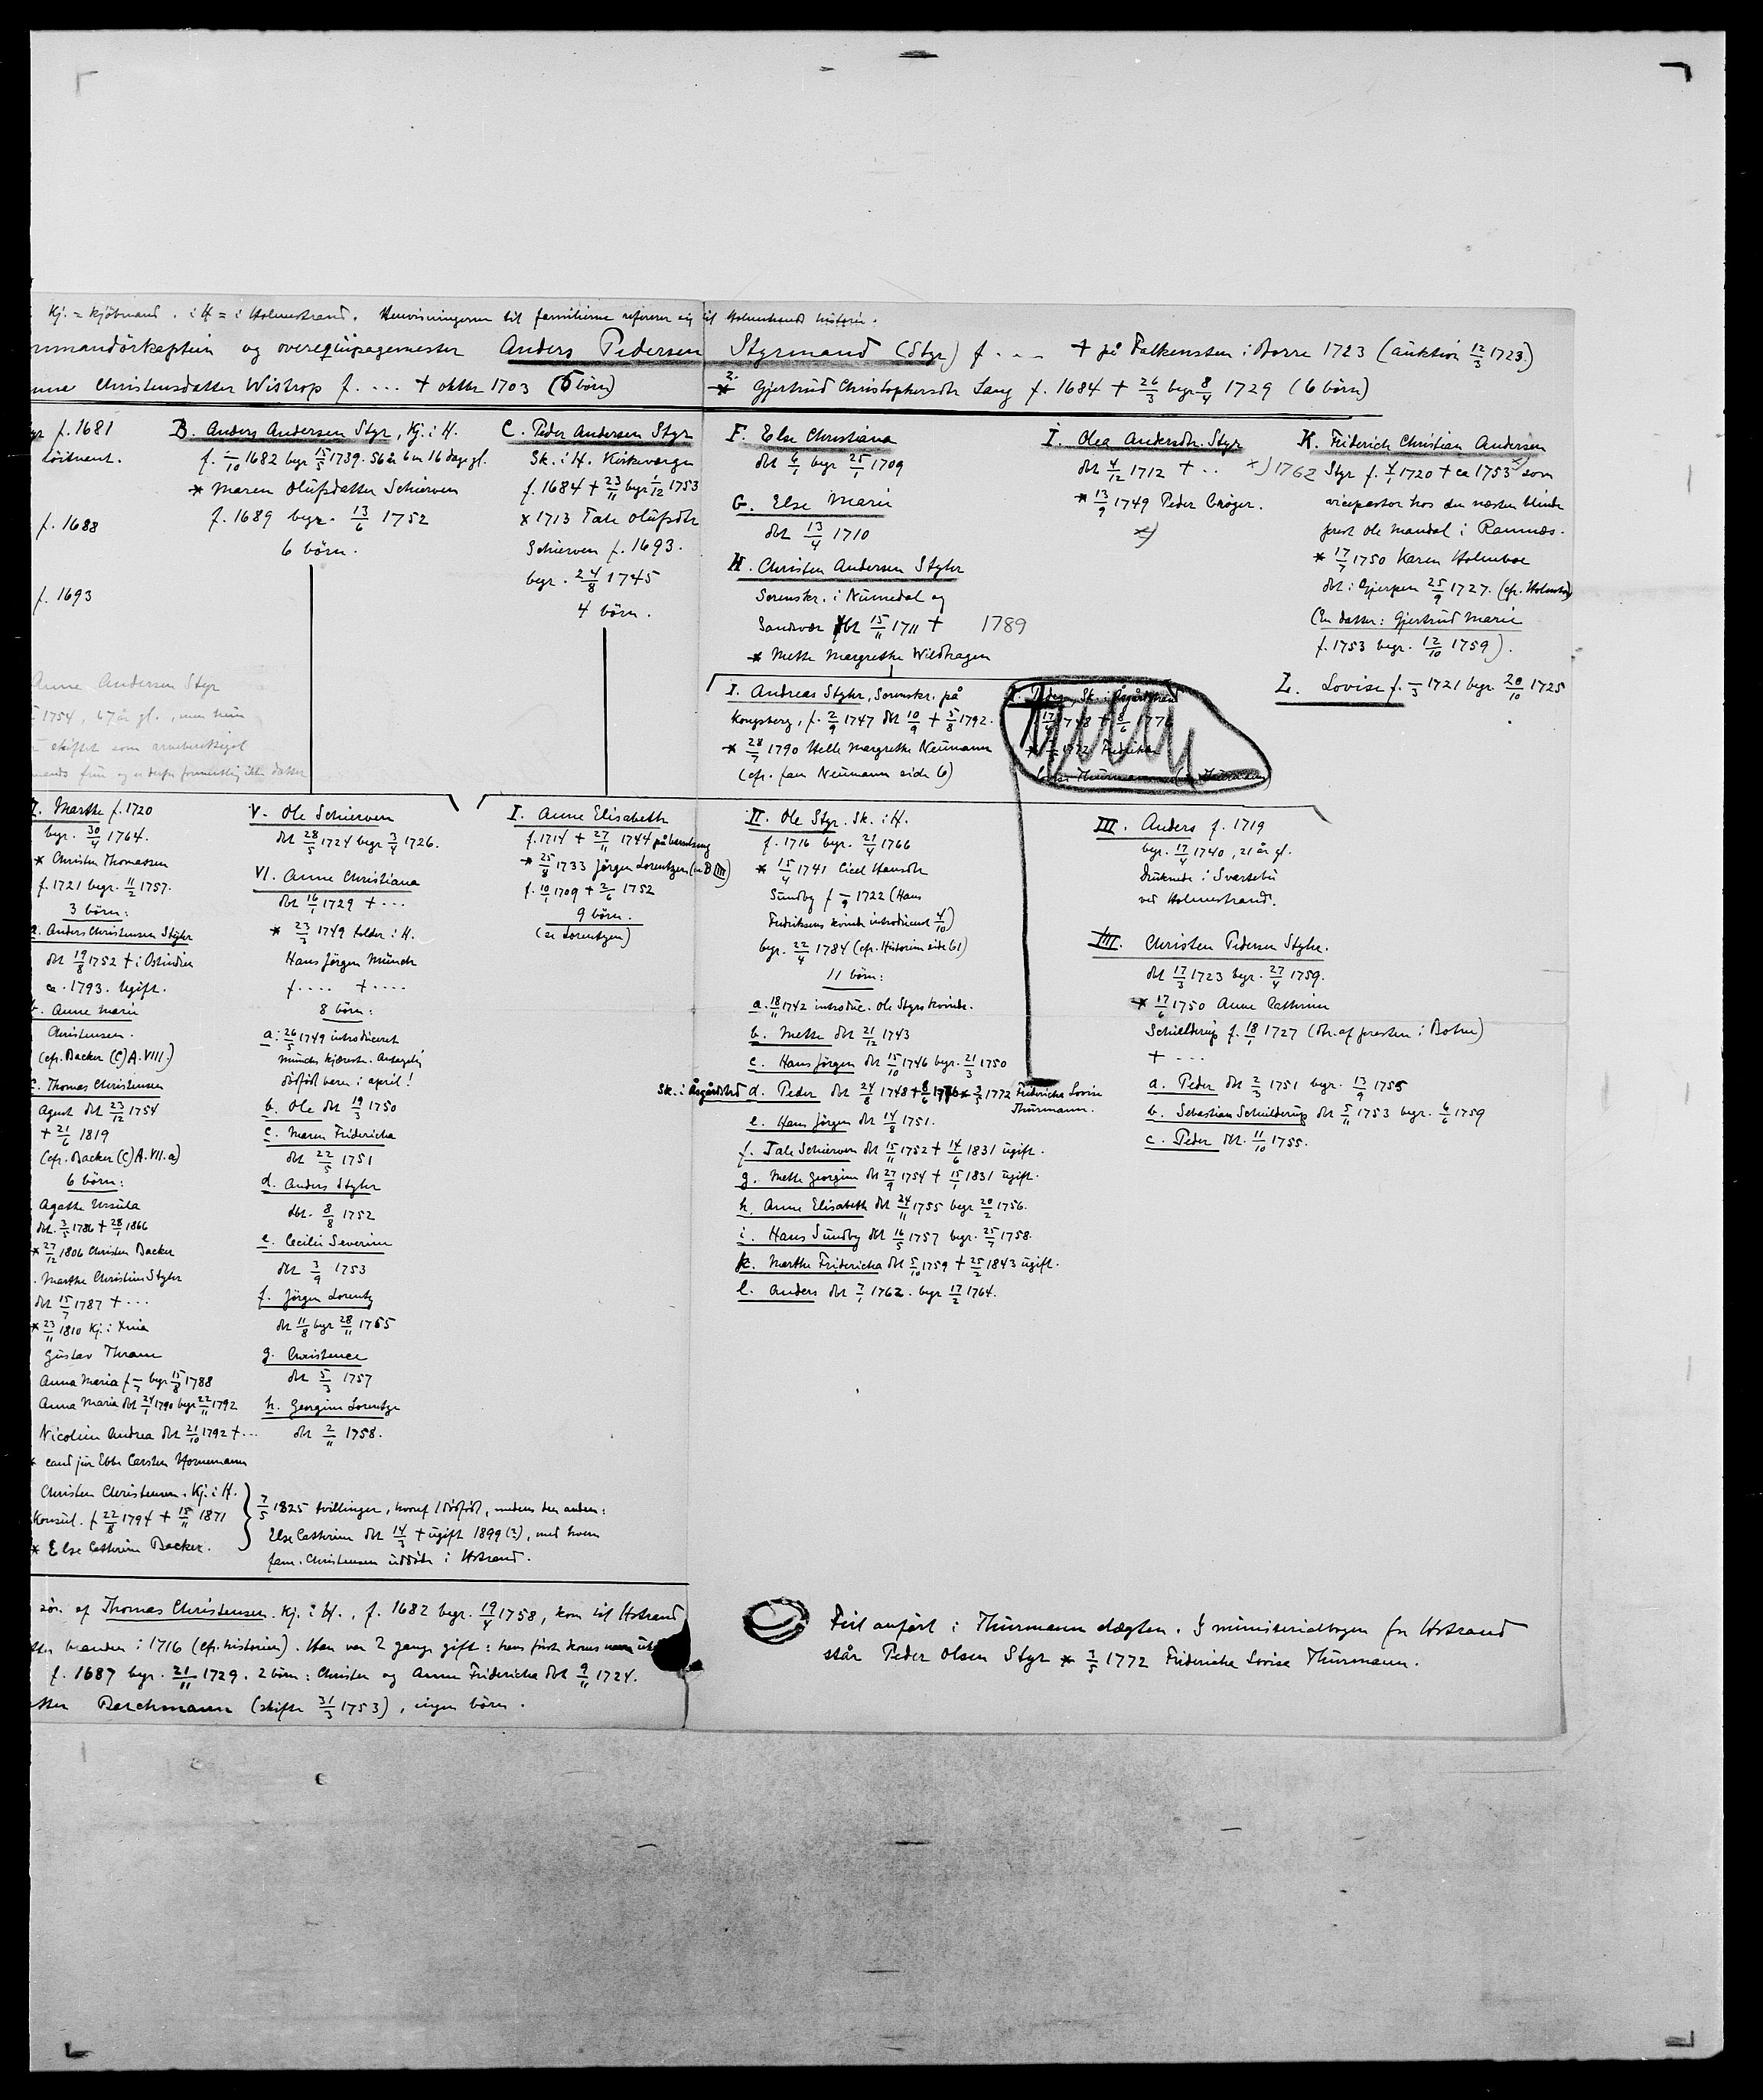 Kj. = kjöbmand. i H = i Holmestrand. Henvisningerne til familierne refererer sig til Holmestrands historie.
mmandörkaptein og overequipagemester Anders Pedersen Styrmand (Styr) f. ... + på Falkensten i Borre 1723 (auktion 12/3 1723)
Christensdatter Wistrop f. ... + oktbr 1703 (5 börn)
2. * Gjertrud Christophersdtr Lang f. 1684 + 26/3 begr 8/4 1729 (6 börn)
f. 1681
löitnant.
f. 1688
f. 1693
Anne Andersen Styr
1754, 67 år gl., men
skiftet som arveberettiget
B. Anders Andersen Styr, Kj. i H.
f. –/10 1682 begr 15/5 1739. 56 år 6 m 16 dage gl.
* Maren Olufsdatter Schierven
f. 1689 begr. 13/6 1752
6 börn.
C. Peder Andersen Styr
Sk. i H. Kirkeværge
f. 1684 + 23/11 begr 1/12 1753
* 1713 Tale Olufsdtr
Schierven f. 1693.
begr. 24/8 1745
4 börn.
F. Else Christiana
dbt 6/1 begr 25/1 1709
G. Else Marie
dbt 13/4 1710
H. Christen Andersen Styhr
Sorenskr. i Numedal og
Sandsvær dbt 15/11 1711 + 1789
* Mette Margrethe Wildhagen
I. Olea Andersdtr. Styr
dbt 4/12 1712 + .. x) 1762
* 13/9 1749 Peder Cröger.
x)
K. Friderich Christian Andersen
Styr f. 4/1 1720 + ca 1753 x) som
vicepastor hos den næsten blinde
prest Ole Mandal i Ramnæs.
* 17/7 1750 Karen Holmboe
dbt i Gjerpen 25/9 1727. (cfr. Holmboe)
(En datter: Gjertrud Marie
f. 1753 begr. 12/10 1759).
L. Lovise f. –/3 1721 begr. 20/10 1725
I. Andreas Styhr, Sorenskr. på
Kongsberg, f. 2/9 1747 dbt 10/9 + 5/8 1792.
* 28/7 1790 Helle Margrethe Neumann
(cfr. fam Neumann side 6)
Peder, Sk. i Åsgårdstrand
17/ 1748 + 8/6 1776
1772 Fridericha
Thurmann
I. Marthe f. 1720
begr. 30/4 1764.
* Christen Thomassen
f. 1721 begr. 11/2 1757.
3 börn:
a. Anders Christensen Stÿhr
dbt 19/8 1752 + i Ostindien
ca. 1793. Ugift.
b. Anne Marie
Christensen.
(cfr. Backer (C) A. VIII.)
c. Thomas Christensen
Agent dbt 23/12 1754
+ 21/6 1819
(cfr. Backer (C) A. VII. a)
6 börn:
Agathe Ursula
dbt. 3/5 1786 + 28/1 1866
* 27/12 1806 Christen Backer
Marthe Christine Styhr
dbt 15/7 1787 + ...
* 23/11 1810 Kj. i Xnia
Gustav Thrane
Anna Maria f –/7 begr 15/8 1788
Anna Maria dbt 24/1 1790 begr 22/11 1792
Nicoline Andrea dbt 21/10 1792 + ...
* cand jur Ebbe Carsten Hornemann
Christen Christensen. Kj. i H.
Konsul. f 22/8 1794 + 15/11 1871
* Else Cathrine Backer.
7/5 1825 tvillinger, hvoraf 1 dödföd, medens den anden:
Else Cathrine dbt 14/3 + ugift 1899 (?), med hvem
fam. Christensen uddöde i Hstrand.
V. Ole Schierven
dbt 28/5 1724 begr 3/4 1726.
VI. Anne Christiana
dbt 16/1 1729 + ...
* 23/3 1749 tolder i H.
Hans Jörgen Münch
f .... + ....
8 börn:
a. 26/5 1749 introduceret
Münchs kjæreste. Antagelig
dödföd barn i april!
b. Ole dbt 19/3 1750
c. Maren Fridericha
dbt 22/5 1751
d. Anders Styhr
dbt. 8/8 1752
e. Cecilie Severine
dbt 3/9 1753
f. Jörgen Lorentz
dbt 11/8 begr 28/11 1755
g. Christence
dbt 5/3 1757
h. Georgine Lorentze
dbt 2/11 1758.
I. Anne Elisabeth
f. 1714 + 27/11 1744 på barselseng
* 25/8 1733 Jörgen Lorentzen (se B III)
f. 10/1 1709 + 2/6 1752
9 börn.
(se Lorentzen)
II. Ole Styr. Sk. i H.
f. 1716 begr. 21/4 1766
* 15/4 1741 Cicel Hansdtr
Sundby f –/9 1722 (Hans
Fredriksens kvinde introduceret 4/10)
begr. 22/4 1784 (cfr. Historien side 61)
11 börn:
a. 18/11 1742 introduc. Ole Styrs kvinde.
b. Mette dbt 21/12 1743
c. Hans Jörgen dbt 15/10 1746 begr. 21/3 1750
Sk. i Åsgårdstrd d. Peder dbt 24/8 1748 + 8/6 1776 * 3/5 1772 Fridericha Lovise
Thurmann.
e. Hans Jörgen dbt 14/8 1751.
f. Tale Schierven dbt 15/11 1752 + 14/6 1831 ugift.
g. Mette Georgine dbt 27/9 1754 + 15/1 1831 ugift.
h. Anne Elisabeth dbt 24/11 1755 begr 20/2 1756.
i. Hans Sundby dbt 16/5 1757 begr. 25/7 1758.
k. Marthe Fridericha dbt 5/10 1759 + 25/2 1843 ugift.
l. Anders dbt 7/1 1762. begr 17/2 1764.
III. Anders f. 1719
begr. 17/4 1740, 21 år gl.
druknede i Svartebu
ved Holmestrand.
IIII. Christen Pedersen Styhr.
dbt 17/3 1723 begr. 27/4 1759.
* 17/6 1750 Anne Cathrine
Schielderup f. 18/1 1727 (dtr. af presten i Botne)
+ ....
a. Peder dbt 2/3 1751 begr. 13/9 1755
b. Sebastian Schielderup dbt 5/11 1753 begr. 6/6 1759
c. Peder dbt. 11/10 1755.
sön af Thomas Christensen. Kj. i H., f. 1682 begr. 19/4 1758, kom til Hstrand
branden i 1716 (cfr. historien). Han var 2 gange gift: hans förste kones navn
f. 1687 begr. 21/11 1729. 2 börn: Christen og Anne Fridericha dbt 9/11 1724.
Berchmann (skifte 31/3 1753), ingen börn.
Feil anfört i Thurmann slægten. I ministerialbogen for Hstrand
står Peder Olsen Styr * 3/5 1772 Fridericha Lovise Thurmann.